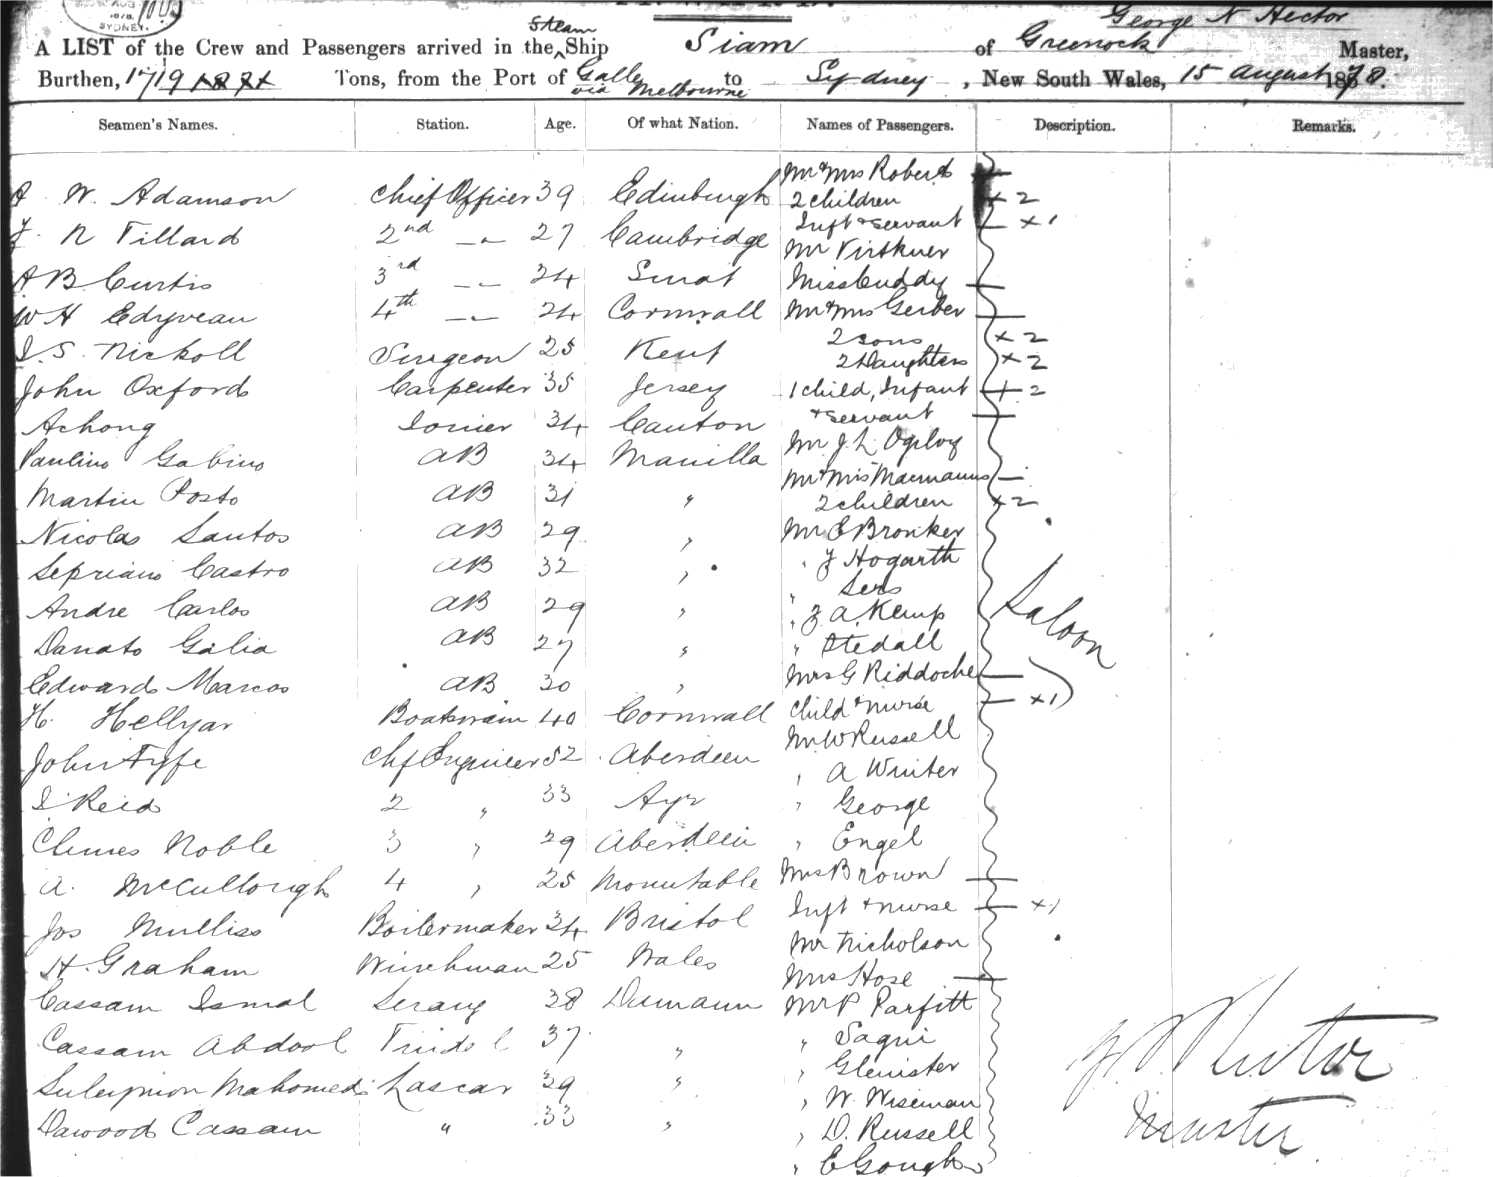 AUG
1878
SYDNEY.
George N Hector
Steam
A LIST of the Crew and Passengers arrived in the Ship Siam of Greenock Master,
Burthen, 1719 Tons, from the Port of Galle via Melbourne to Sydney, New South Wales, 15 August 1878.
Seamen's Names. Station. Age. Of what Nation. Names of Passengers. Description. Remarks.
Mr & Mrs Roberts
A W. Adamson Chief Officer 39 Edinburgh 2 children × 2
Inft & servant × 1
F. N Tillard 2nd -"- 27 Cambridge
Mr Virtkner
A B Curtis 3rd -"- 24 Surat Miss Cuddy
W H Edyvean 4th -"- 24 Cornwall Mr & Mrs Gerber
2 sons × 2
I. S. Nickoll Surgeon 25 Kent 2 Daughters × 2
John Oxford Carpenter 35 Jersey 1 child, Infant + 2
& servant
Achong Joiner 34 Canton
Mr J. L. Ogilvy
Paulino Gabino AB 34 Manilla
Mr & Mrs Macmanus
Martin Posto AB 31 " 2 children × 2
Nicolas Santos AB 29 " Mr E Bronker
" F Hogarth
Sepriano Castro AB 32 " " Sers
Andre Carlos AB 29 " " F. A. Kemp Saloon
Danato Galia AB 27 " " Stedall
Edwardo Marcos AB 30 " Mrs G Riddoche
H. Hellyar Boatswain 40 Cornwall Child & nurse × 1
Mr W Russell
John Fyfe Chf Engineer 52 Aberdeen " A Winter
I Reid 2 " 33 Ayr " George
Clemes Noble 3 " 29 Aberdeen " Engel
A. McCullough 4 " 25 Mrs Brown
Jos Mulliss Boilermaker 34 Bristol Inft & nurse × 1
Mr Nicholson
H. Graham Winchman 25 Wales
Mrs Hose
Cassam Ismal Serang 38 Dumaun Mr P Parfitt
Cassam Abdool Tindol 37 " " Saqui
" Glenister
Suleymon Mahomed Lascar 29 " " W. Wiseman
Dawood Cassam " 33 " " D. Russell
" E Gough
Hector
Master